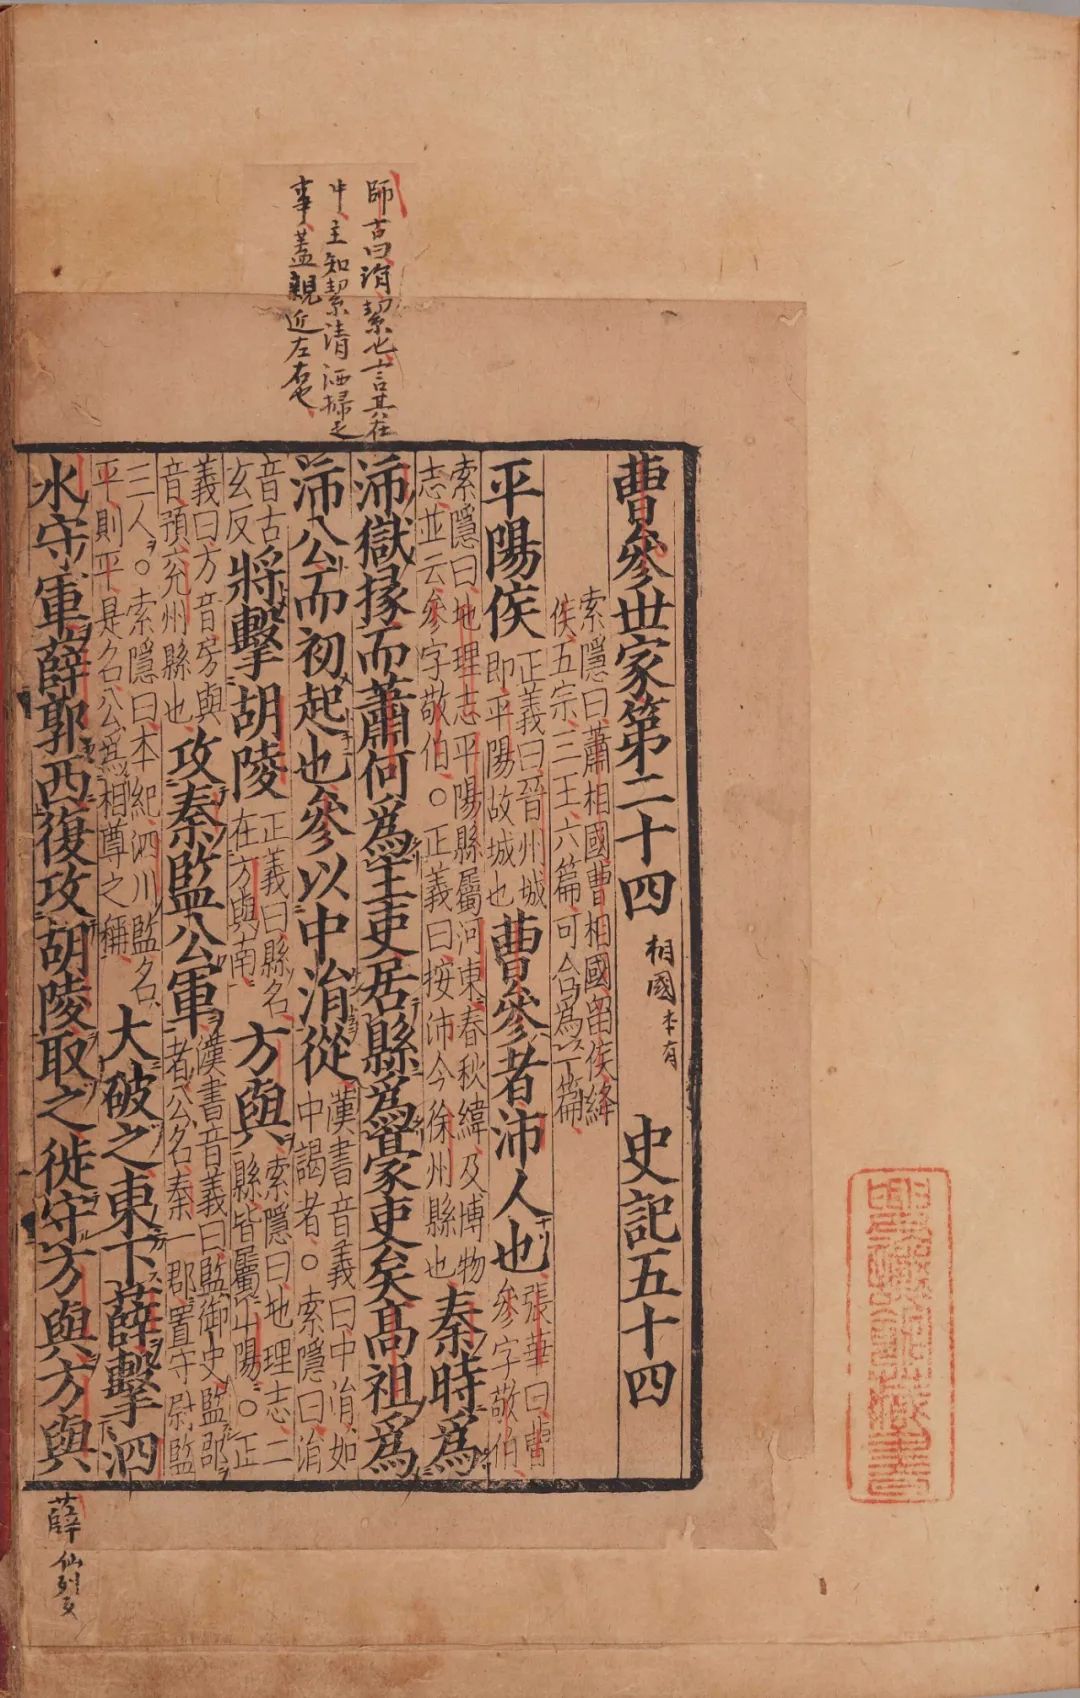 師古曰涓絜也言其在
中主知絜清洒掃之
事蓋親近左右也
曹參世家第二十四 相國本有 史記五十四
索隱曰蕭相國曹相國留侯絳
侯五宗三王六篇可合為一篇
平陽侯 正義曰晉州城即平陽故城也 曹參者沛人也 張華曰曹參字敬伯
索隱曰地理志平陽縣屬河東春秋緯及博物志並云參字敬伯○正義曰按沛今徐州縣也 秦時為
沛獄掾而蕭何為主吏居縣為豪吏矣高祖為
沛公而初起也參以中涓從 漢書音義曰中涓如中謁者○索隱曰涓
音古玄反 將擊胡陵 正義曰縣名在方與南 方與 索隱曰地理志二縣皆屬山陽○正
義曰方音房與音預兗州縣也 攻秦監公軍 漢書音義曰監御史監郡者公名秦一郡置守尉監
三人○索隱曰本紀泗川監名平則平是名公為相尊之稱 大破之東下薛擊泗
水守軍薛郭西復攻胡陵取之徙守方與方與
薛仙列反